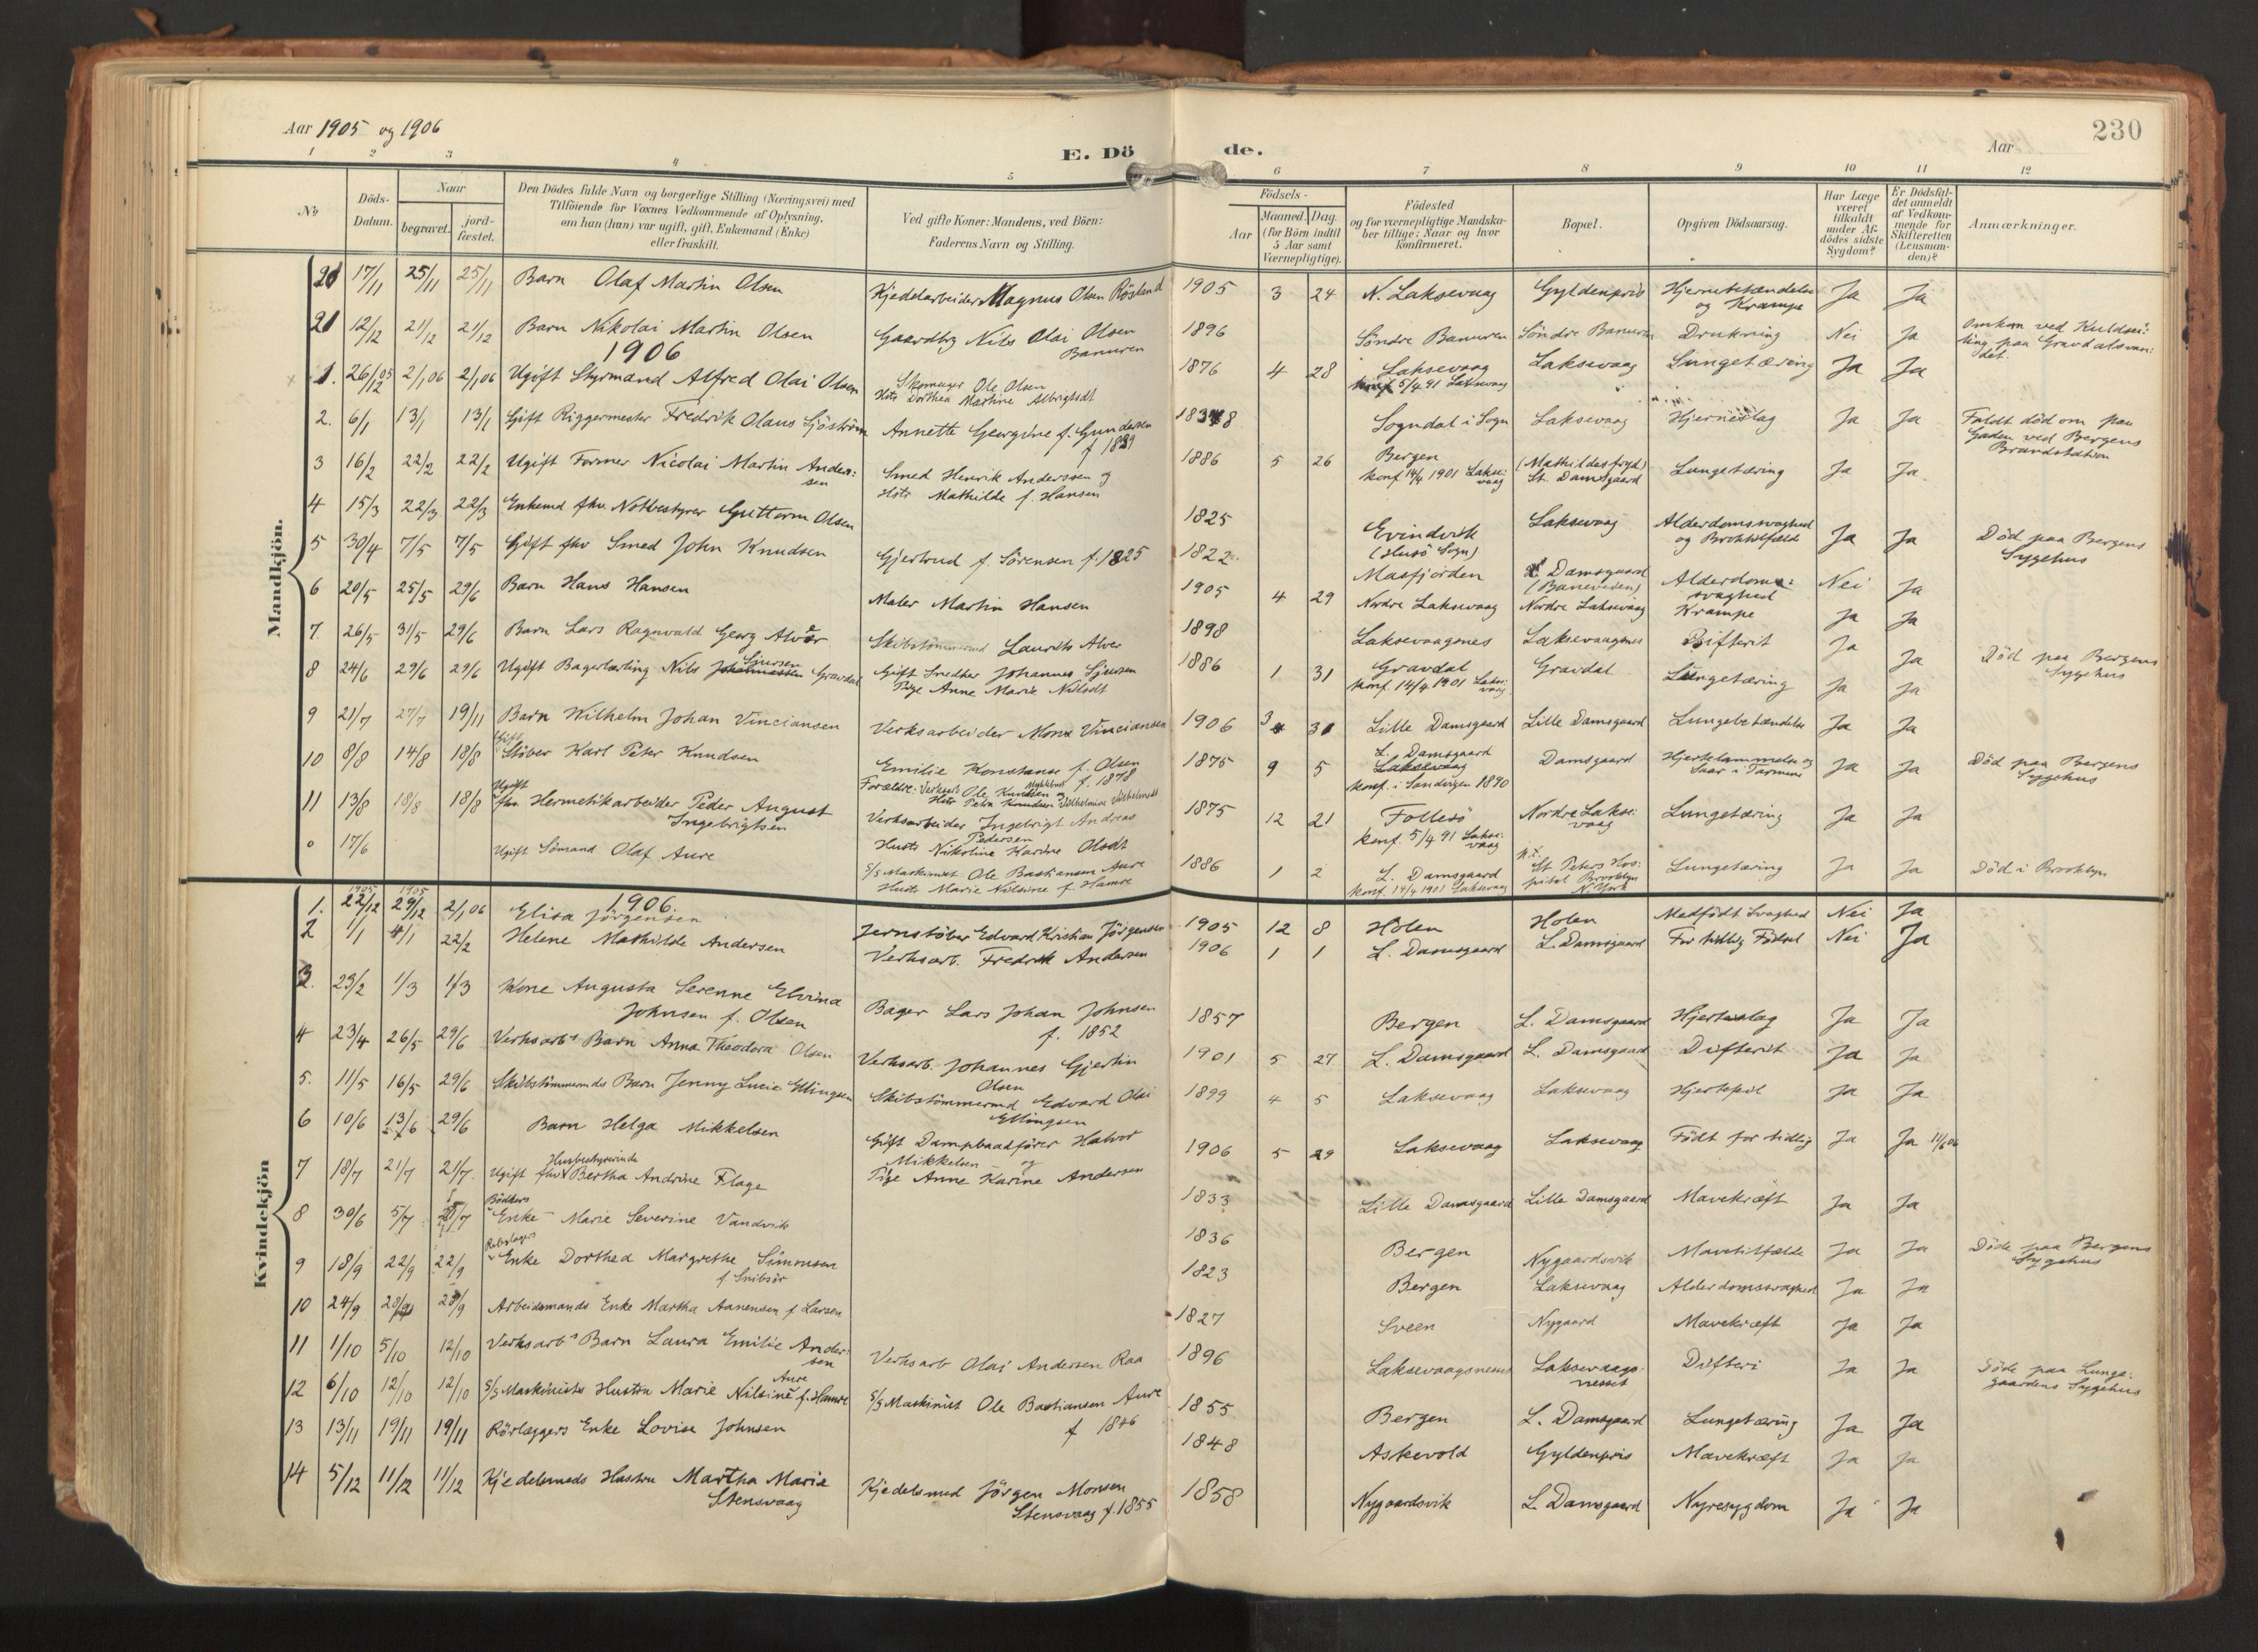 Aar 1905 og 1906
E. Döde.
Aar
230
1 2 3 4 5 6 7 8 9 10 11 12
No
Döds-Datum.
Naar
begravet.
jord-fæstet.
Den Dödes fulde Navn og borgerlige Stilling (Næringsvei) med
Tilföiende for Voxnes Vedkommende af Oplysning,
om han (hun) var ugift, gift, Enkemand (Enke)
eller fraskilt.
Ved gifte Koner: Mandens, ved Börn:
Faderens Navn og Stilling.
Födsels-
Aar
Maaned. Dag.
(for Börn indtil
5 Aar samt
Værnepligtige).
Födested
og for værnepligtige Mandska-
ber tillige: Naar og hvor
Konfirmeret.
Bopæl.
Opgiven Dödsaarsag.
Har Læge
været
tilkaldt
under Af-
dödes sidste
Sygdom?
Er Dödsfal-
det anmeldt
af Vedkom-
mende for
Skifteretten
(Lensman-
den)?
Anmærkninger.
Mandkjön.
17/11 25/11 25/11 Barn Olaf Martin Olsen Kjedelarbeider Magnus Olsen Rösland 1905 3 24 N. Laksevaag Gyldenpris Hjernebetændelse og Krampe Ja Ja
21 12/12 21/12 21/12 Barn Nikolai Martin Olsen Gaardbr Nils Olai Olsen Banuren 1896 Söndre Banuren Söndre Banuren Drukning Nei Ja Omkom ved Kuldsei:ling paa Gravdalsvan:det.
1906
1. 26/12 05 2/1 06 2/1 06 Ugift Styrmand Alfred Olai Olsen Skomager Ole Olsen Hstr Dorthea Martine Albrigtsdt 1876 4 28 Laksevaag Konf. 5/4 91 Laksevaag Laksevaag Lungetæring Ja Ja
2. 6/1 13/1 13/1 Gift Riggermester Fredrik Olaus Sjöström Annette Georgine f. Gundersen f 1839 Sogndal i Sogn Laksevaag Hjerneslag Ja Ja Faldt död om paa Gaden ved Bergens Brandstation
3 16/2 22/2 22/2 Ugift Former Nicolai Martin Anders:sen Smed Henrik Anderssen og Hstr Mathilde f. Hansen 1886 5 26 Bergen Konf. 14/4 1901 Lakse:vaag (Mathildesfryd) St. Damsgaard Lungetæring Ja Ja
4 15/3 22/3 22/3 Enkemd fhv. Notbestyrer Guttorm Olsen 1825 Evindvik (Husö Sogn) Laksevaag Alderdomssvaghed og Brokktilfælde Ja Ja Död paa Bergens Sygehus
5 30/4 7/5 7/5 Gift fhv Smed John Knudsen Gjertrud f. Sörensen f. 1825 1822 Masfjorden L. Damsgaard (Baneveien) Alderdoms:svaghed Nei Ja
6 20/5 25/5 29/6 Barn Hans Hansen Maler Martin Hansen 1905 4 29 Nordre Laksevaag Nordre Laksevaag Krampe Ja Ja
7. 26/5 31/5 29/6 Barn Lars Ragnvald Georg Alver Skibstömmermd Laurits Alver 1898 Laksevaagsnes Laksevaagsnes Difterit Ja Ja Död paa Bergens Sygehus
8 24/6 29/6 29/6 Ugift Bagerlærling Nils Johannessen Sjursen Gravdal Gift Smedker Johannes Sjursen Pige Anne Marie Nilsdt 1886 1 31 Gravdal Konf. 14/4 1901 Lakse:vaag Gravdal Lungetæring Ja Ja
9 21/7 27/7 19/11 Barn Wilhelm Johan Vinciansen Verksarbeider Mons Vinciansen 1906 3 31 Lille Damsgaard Lille Damsgaard Lungebetændelse Ja Ja
10 8/8 14/8 18/8 Gift Stöber Karl Peter Knudsen Emilie Konstanse f. Olsen f. 1878 Forældre: Verksarb Ole Knudsen Myklebust og Hstr Petra Knudsen Vilhelmine Vilhelmsdt 1875 9 5 L. Damsgaard Laksevaag Konf. i Sandvigen 1890 Damsgaard Hjertelammelse og Saar i Tarmene Ja Ja Död paa Bergens Sygehus
11 13/8 18/8 18/8 Ugift fhv Hermetikarbeider Peder August Ingebrigtsen Verksarbeider Ingebrigt Andreas Pedersen Hustr Nikoline Karine Olsdt 1875 12 21 Follesö Konf. 5/4 91 Lakse:vaag Nordre Lakse:vaag Lungetæring Ja Ja
0 17/6 Ugift Sömand Olaf Aure S/S Maskinist Ole Bastiansen Aure Hustr Marie Nilsine f. Hamre 1886 1 2 L. Damsgaard Konf. 14/4 1901 Laksevaag St Peters Hos:pital Brooklyn N. York Lungetæring Ja Ja Död i Brooklyn
Kvindekjön
1906.
1. 1905 22/12 1905 29/12 2/1 06 Elisa Jörgensen Jernstöber Edvard Kristian Jörgensen 1905 12 8 Holen Holen Medfödt Svaghed Nei Ja
2 1/1 4/1 22/2 Helene Mathilde Andersen Verksarb. Fredrik Andersen 1906 1 1 L. Damsgaard L. Damsgaard For tidlig Födsel Nei Ja
3. 23/2 1/3 1/3 Kone Augusta Serenne Elvina Johnsen f. Olsen Bager Lars Johan Johnsen f. 1852 1857 Bergen L. Damsgaard Hjerteslag Ja Ja
4 23/4 26/5 29/6 Verksarbs Barn Anna Theodora Olsen Verksarb. Johannes Gjertin Olsen 1901 5 27 L. Damsgaard L. Damsgaard Difterit Ja Ja
5. 11/5 16/5 29/6 Skibstömmermds Barn Jenny Lucie Ellingsen Skibstömmermd Edvard Olai Ellingsen 1899 4 5 Laksevaag Laksevaag Hjertefeil Ja Ja
6 10/6 13/6 29/6 Barn Helga Mikkelsen Gift Dampbaadförer Halvor Mikkelsen og Pige Anne Karine Andersen 1906 5 29 Laksevaag Laksevaag Födt for tidlig Ja Ja 11/6 06
7 18/7 21/7 21/7. Ugift fhv Husbestyrerinde Bertha Andrine Flage 1833 Lille Damsgaard Lille Damsgaard Mavekræft Ja Ja
8 30/6 5/7 5/7 Bödkers Enke Marie Severine Vandvik 1836 Bergen Nygaardsvik Mavetilfælde Ja Ja Döde paa Bergens Sygehus
9 18/9 22/9 22/9 Rebslagers Enke Dorthea Margrethe Simonsen f Snibsör 1823 Bergen Laksevaag Alderdomssvaghed Ja Ja
10 24/9 28/9 28/9 Arbeidsmands Enke Martha Aanensen f Larsen 1827 Sveen Nygaard Mavekræft Ja Ja
11 1/10 5/10 12/10 Verksarbs Barn Laura Emilie Ander:sen Verksarb Olai Andersen Raa 1896 Laksevaagsnesset Laksevaags:nesset Difteri Ja Ja Döde paa Lunge:gaardens Sygehus
12 6/10 12/10 12/10 S/S Maskinists Hustru Marie Nilsine Aure f. Hamre S/S Maskinist Ole Bastiansen Aure f 1846 1855 Bergen L. Damsgaard Lungetæring Ja Ja
13 13/11 19/11 19/11 Rörlæggers Enke Lovise Johnsen 1848 Askevold Gyldenpris Mavekræft Ja Ja
14 5/12 11/12 11/12 Kjedelsmeds Hustru Martha Marie Stensvaag Kjedelsmed Jörgen Monsen Stensvaag f. 1855 1858 Nygaardsvik L. Damsgaard Nyresygdom Ja Ja